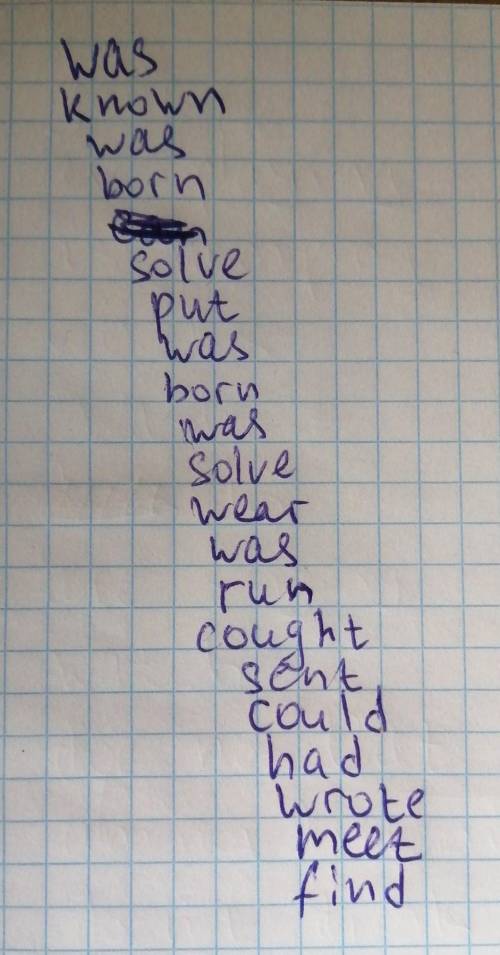 was
known
was
born
solve
put
was
born
was
solve
wear
was
run
cought
sent
could
had
wrote
meet
find